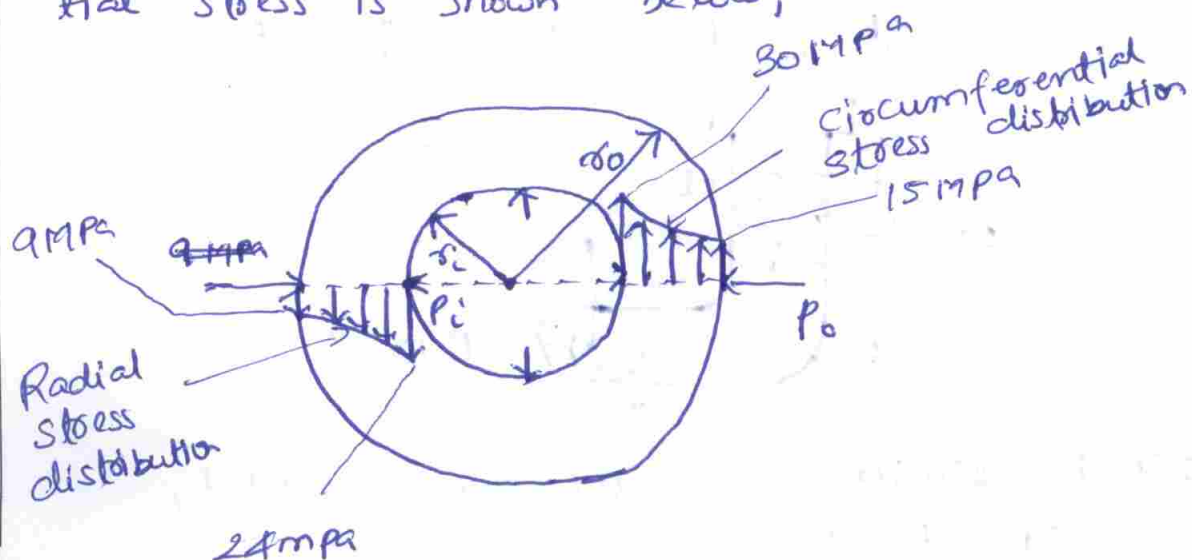 tial stress is shown below,
30 MPa
circumferential
stress distribution
15 MPa
ro
9MPa
9 MPa
ri
Pi
Po
Radial
stress
distribution
24mpa